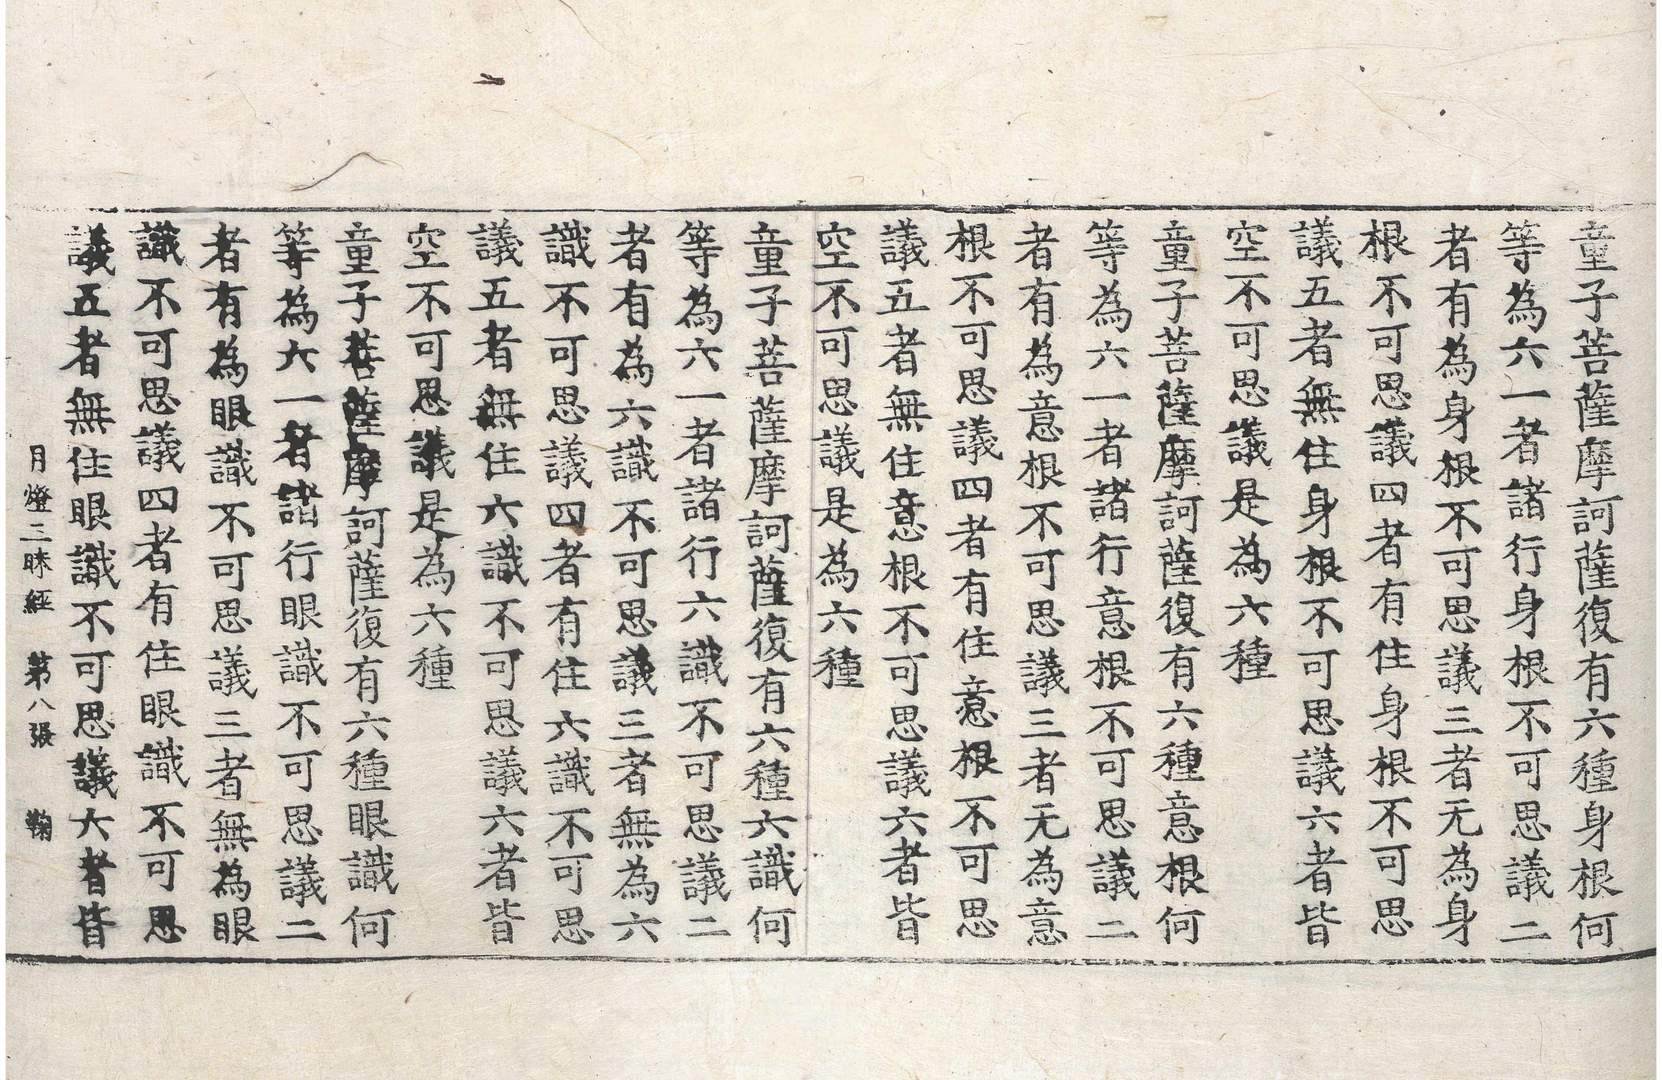 童子菩薩摩訶薩復有六種身根何
等為六一者諸行身根不可思議二
者有為身根不可思議三者无為身
根不可思議四者有住身根不可思
議五者無住身根不可思議六者皆
空不可思議是為六種
童子菩薩摩訶薩復有六種意根何
等為六一者諸行意根不可思議二
者有為意根不可思議三者无為意
根不可思議四者有住意根不可思
議五者無住意根不可思議六者皆
空不可思議是為六種
童子菩薩摩訶薩復有六種六識何
等為六一者諸行六識不可思議二
者有為六識不可思議三者無為六
識不可思議四者有住六識不可思
議五者無住六識不可思議六者皆
空不可思議是為六種
童子菩薩摩訶薩復有六種眼識何
等為六一者諸行眼識不可思議二
者有為眼識不可思議三者無為眼
識不可思議四者有住眼識不可思
議五者無住眼識不可思議六者皆
月燈三昧經 第八張 鞠